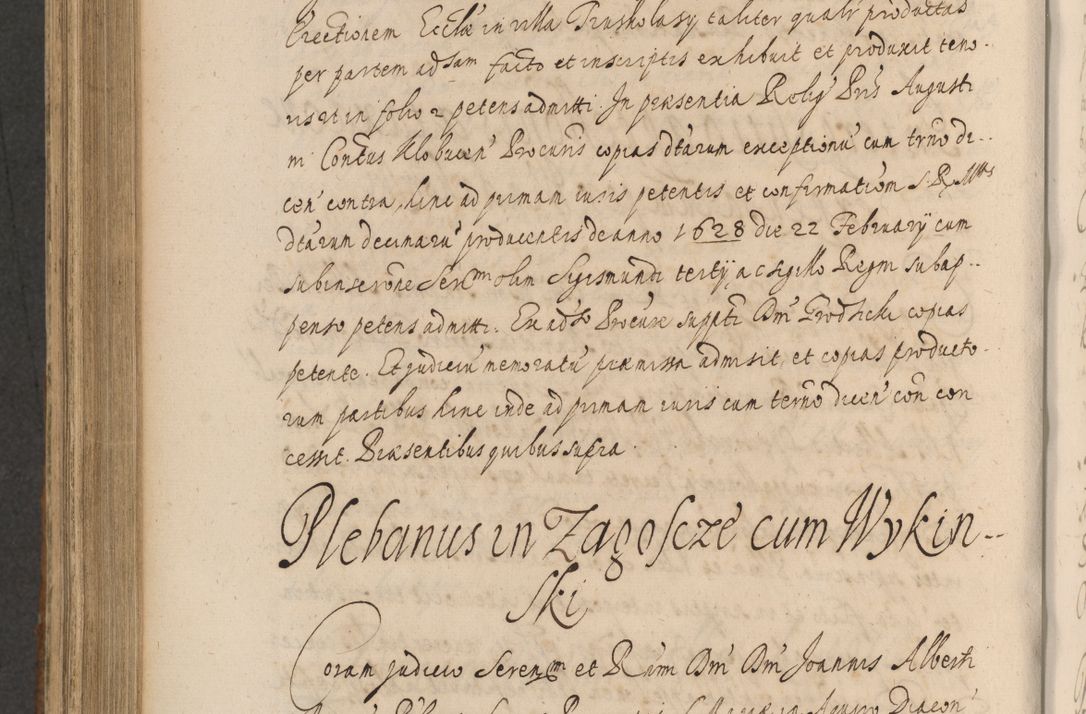 Erectionem Ecclae in villa Truskolasy taliter qualr productas
per partem adsam facto et in scriptis exhibuit et produxit teno-
ris ut in folio 2 petens admitti. In praesentia Relig Pris Augusti
ni Contus Klobucen Procuris copias dtarum exceptionu cum trno di-
cen contra, hinc ad primam iuris petentis et confirmationem S. R. Mttis
dtarum decimaru producentis de anno 1628 die 22 Februarij cum
subinserone Sermi olim Sigismundi tertij ac sigillo Regni subap-
penso petens admitti. Ex adso Procure suppti Dni Grodzicki copias
petente. Et judiciu memoratu praemissa admisit et copias producto-
rum partibus hinc inde ad primam iuris cum termo dicen con con
cessit. Praesentibus quibus supra
Plebanus in Zagoscze cum Wykin-
ski
Coram judicio Serenmi et Rmi Dni Dni Joannis Alberti